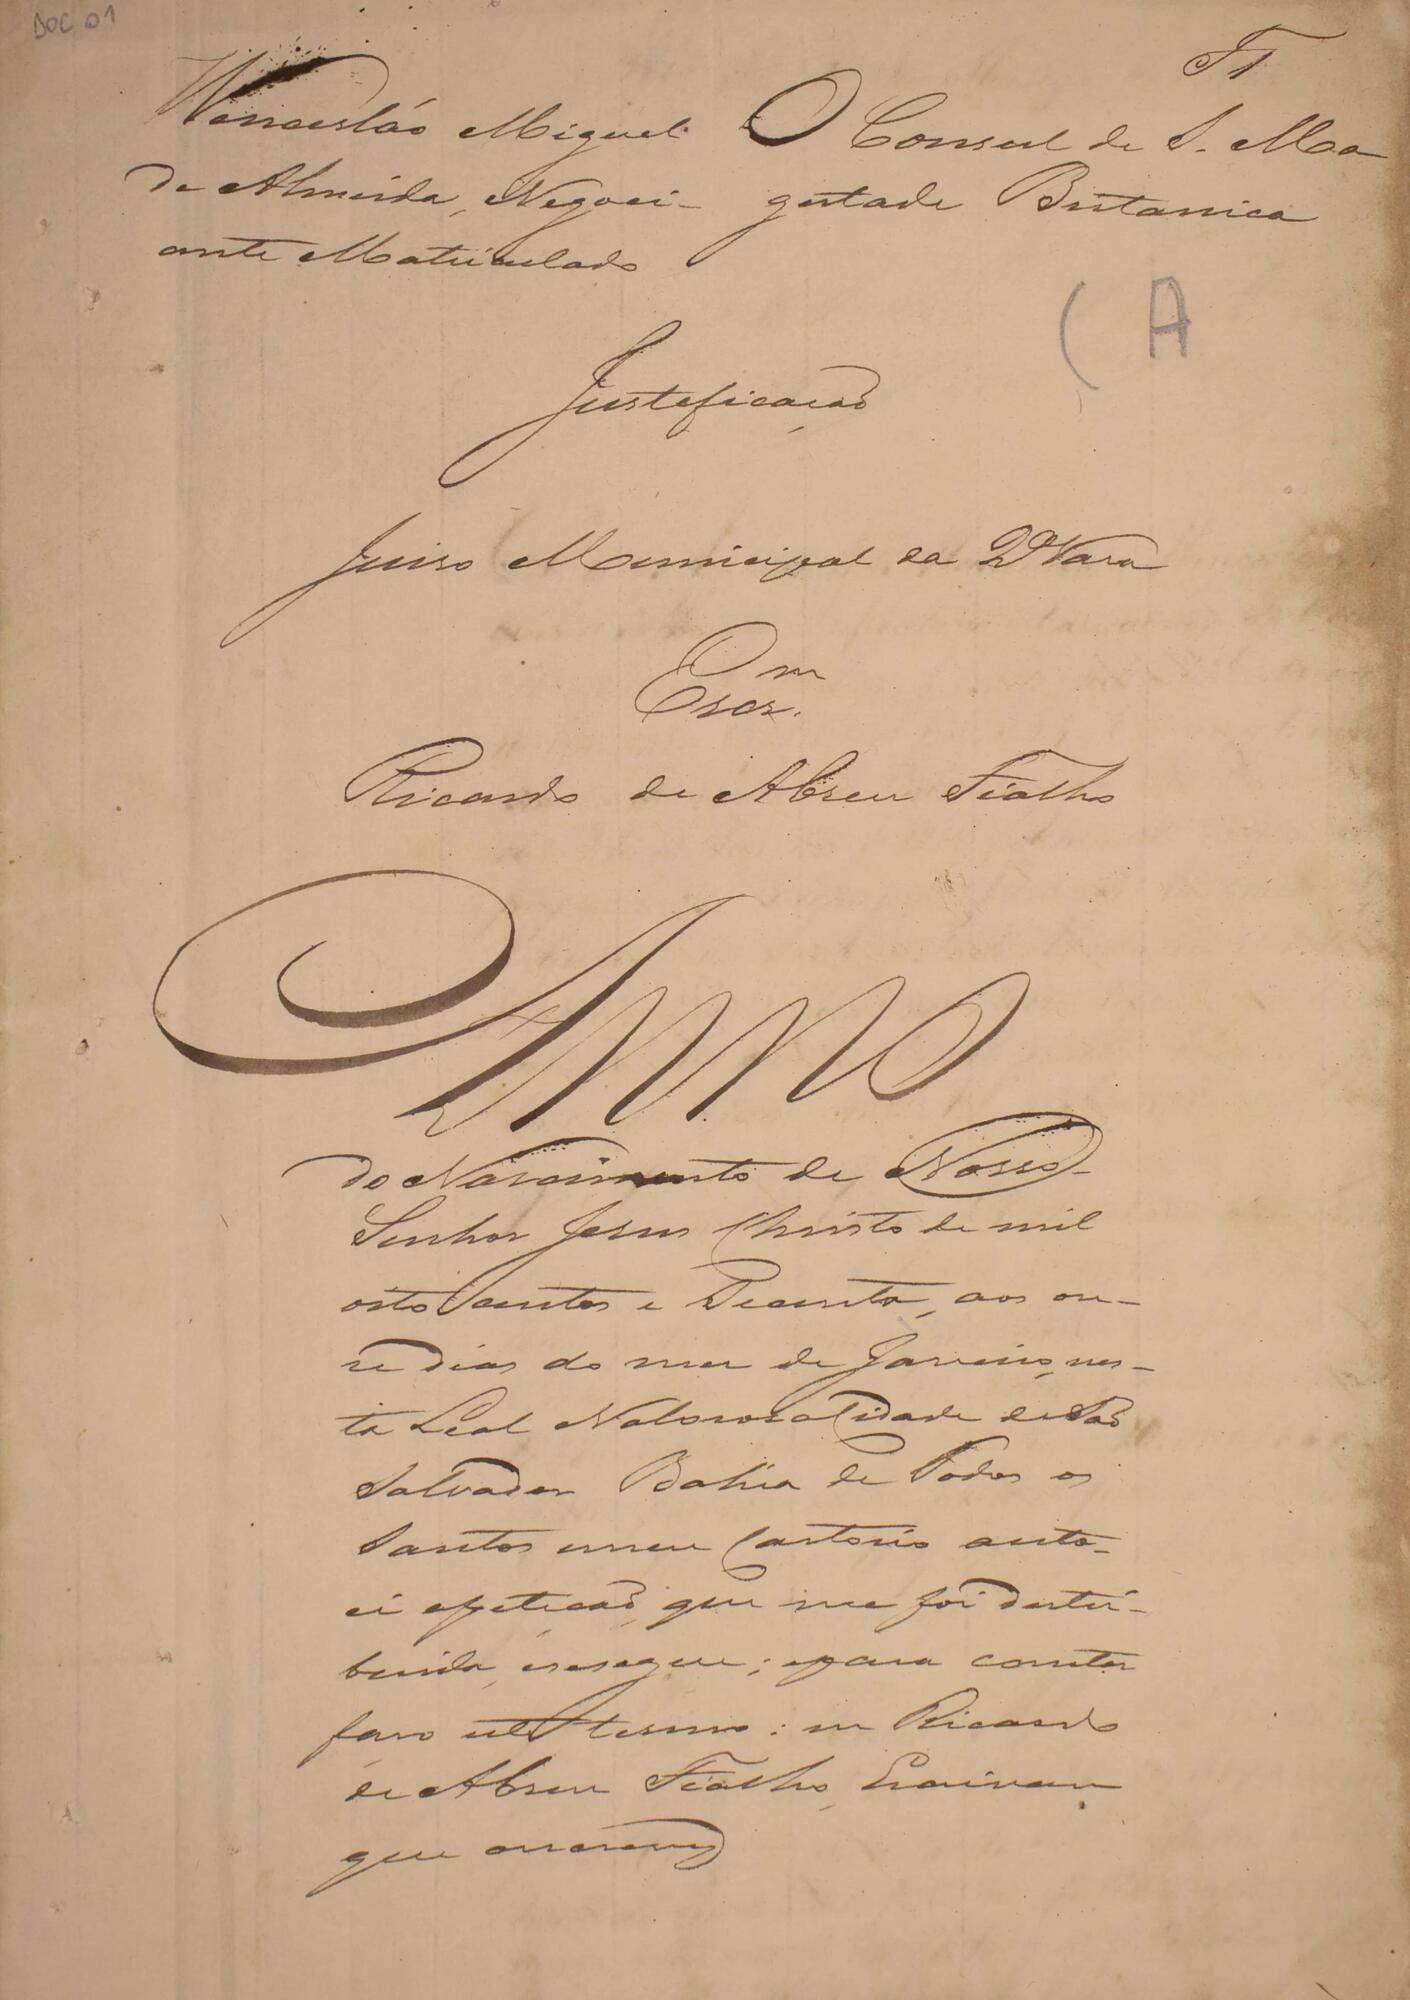 DOC 01
F1
Wencesláo Miguel
de Almeida, Negoci-
ante Matriculado
O Consul de S. Ma
gestade Britanica
(A
Justeficação
Juiso Municipal da 2ª Vara
Escr.m
Ricardo de Abreu Fialho
Anno
do Nascimento de Nosso
Senhor Jesus Christo de mil
oito centos e secenta, aos on-
ze dias do mez de Janeiro, nes-
ta Leal Valorosa Cidade de São
Salvador Bahia de Todos os
Santos em meu Cartorio auto-
ei apetição, que me foi destri-
buida, esesegue; epara constar
faço este termo: eu Ricardo
de Abreu Fialho, Escrivam
que oescrevy